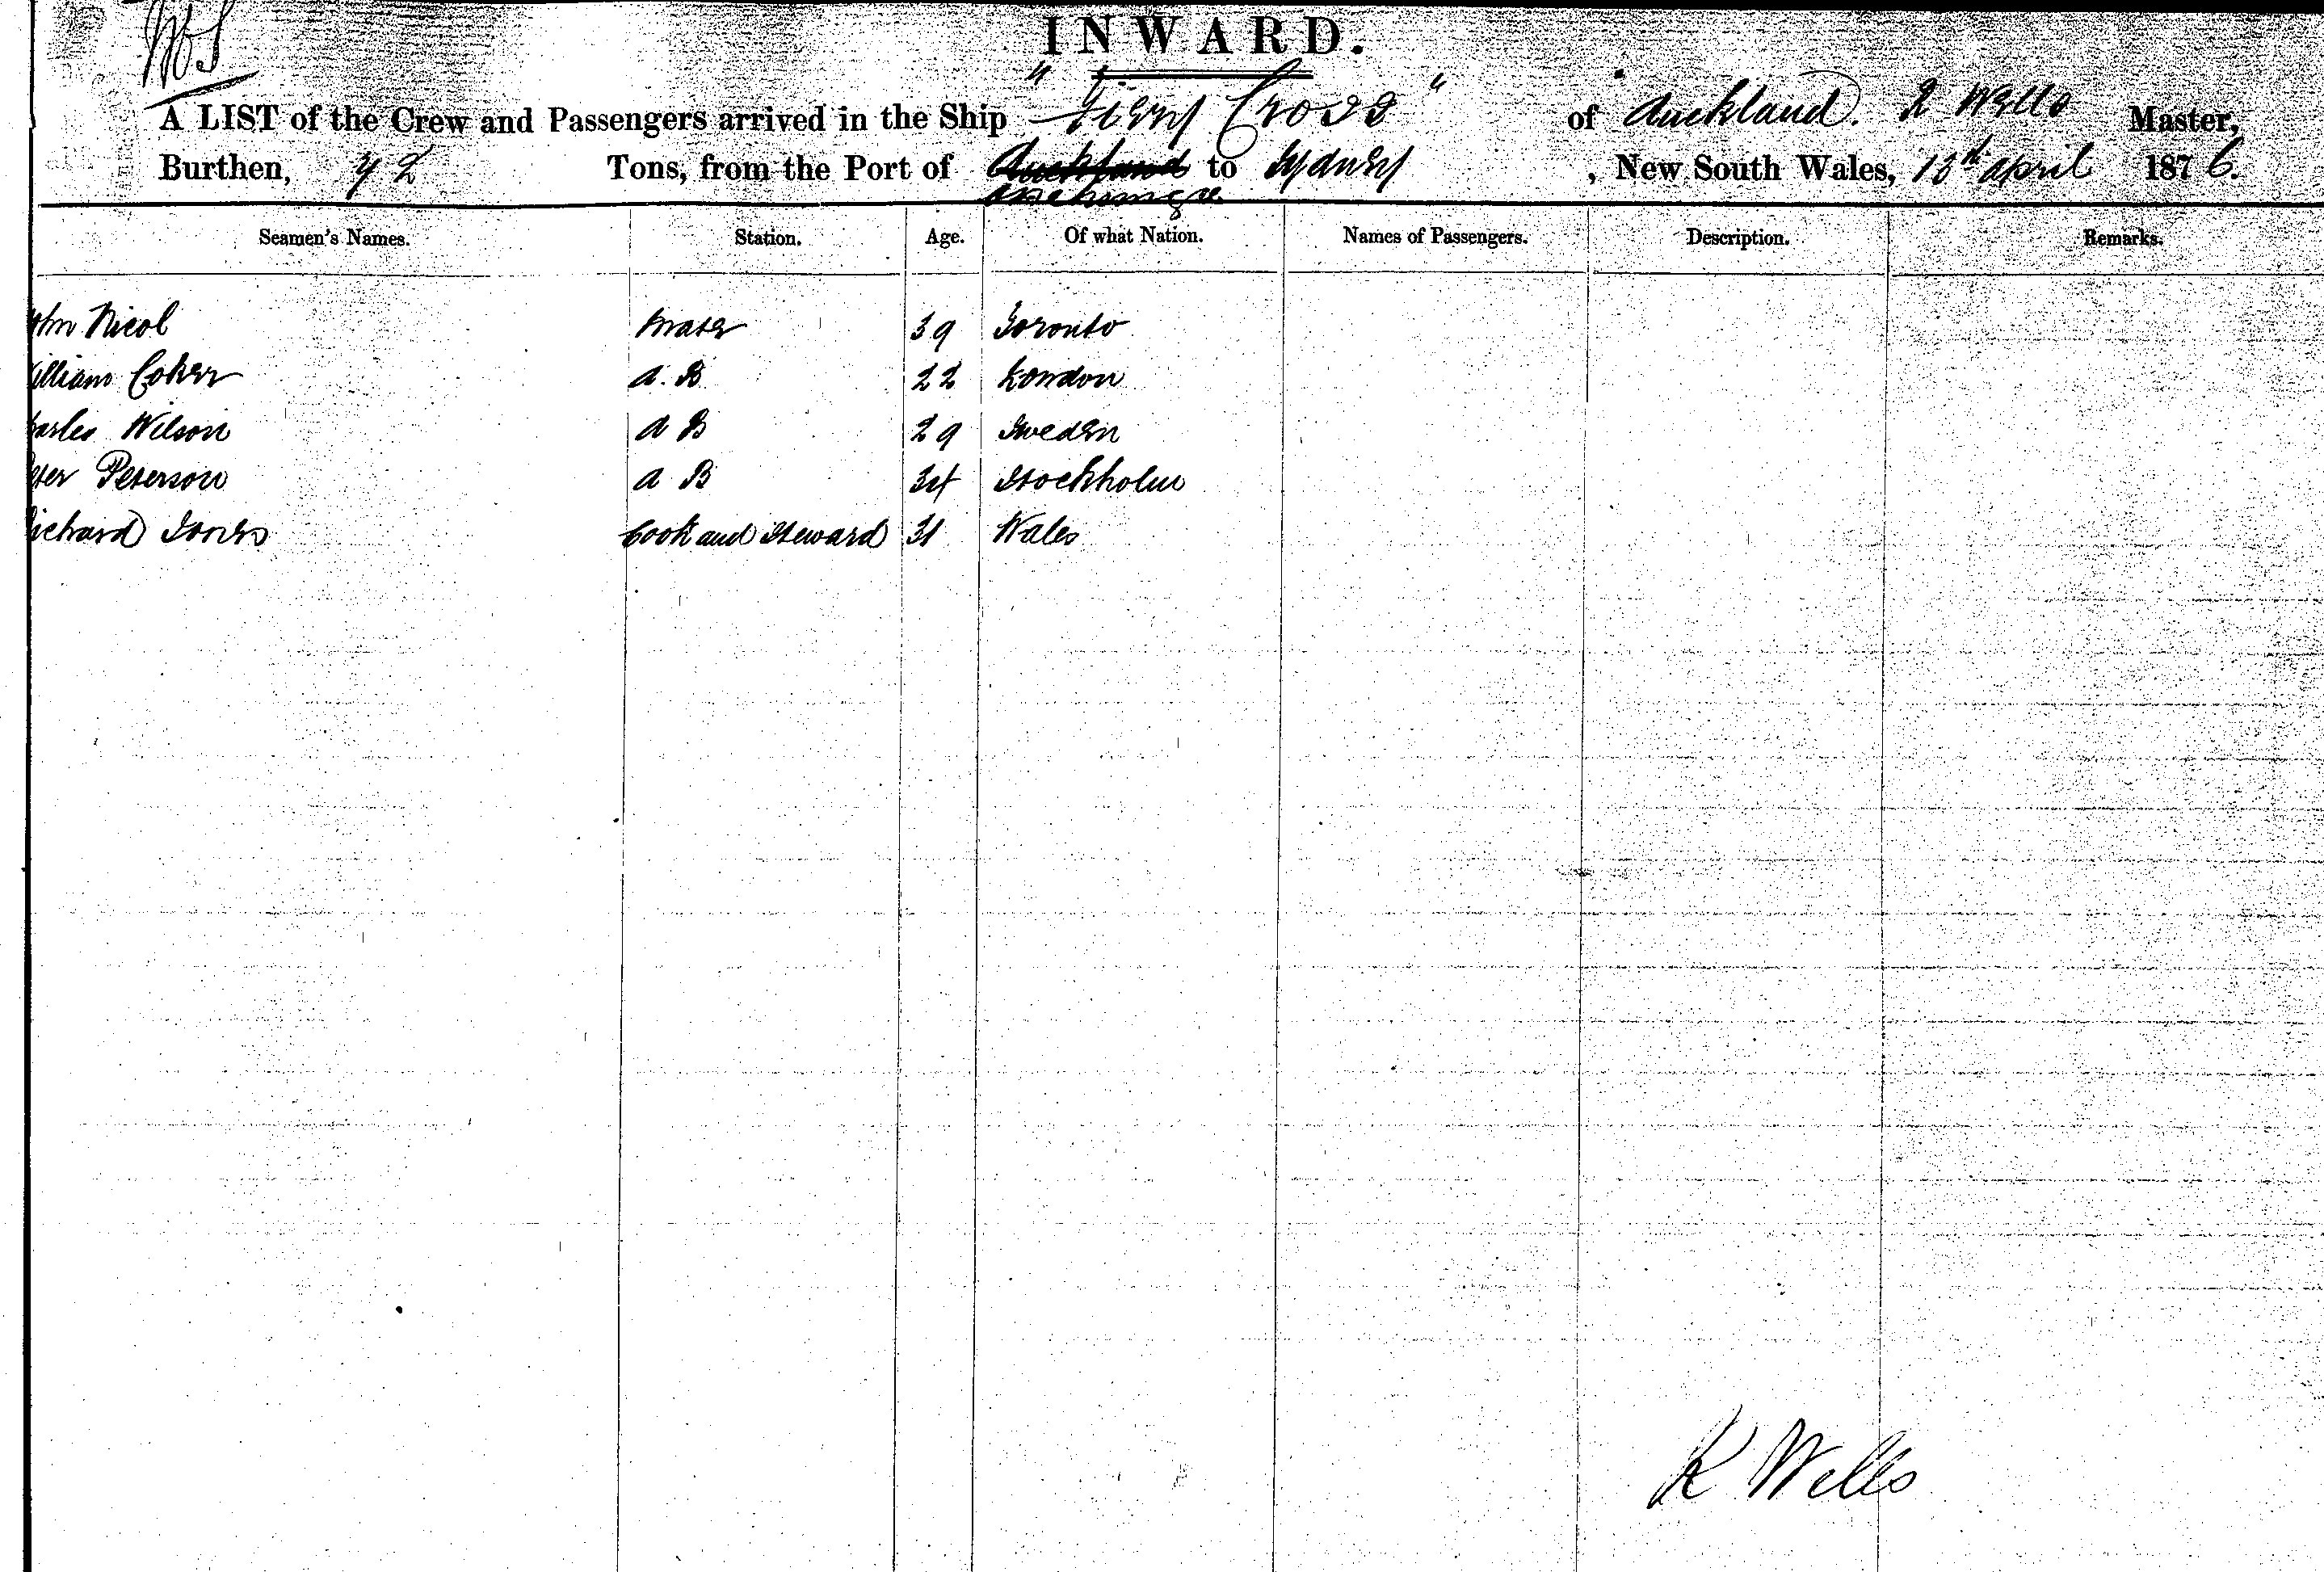 INWARD.
A LIST of the Crew and Passengers arrived in the Ship "Fiery Cross" of Auckland. Wells Master,
Burthen, 72 Tons, from the Port of Auckland to Sydney, New South Wales, 13th april 1876.
Seamen's Names. Station. Age. Of what Nation. Names of Passengers. Description. Remarks.
ohn Nicol Mate 39 Toronto
illiam Coker a. B 22 London
harles Wilson a B 29 Sweden
eter Peterson a B 34 Stockholm
ichard Jones Cook and Steward 31 Wales
K Wells